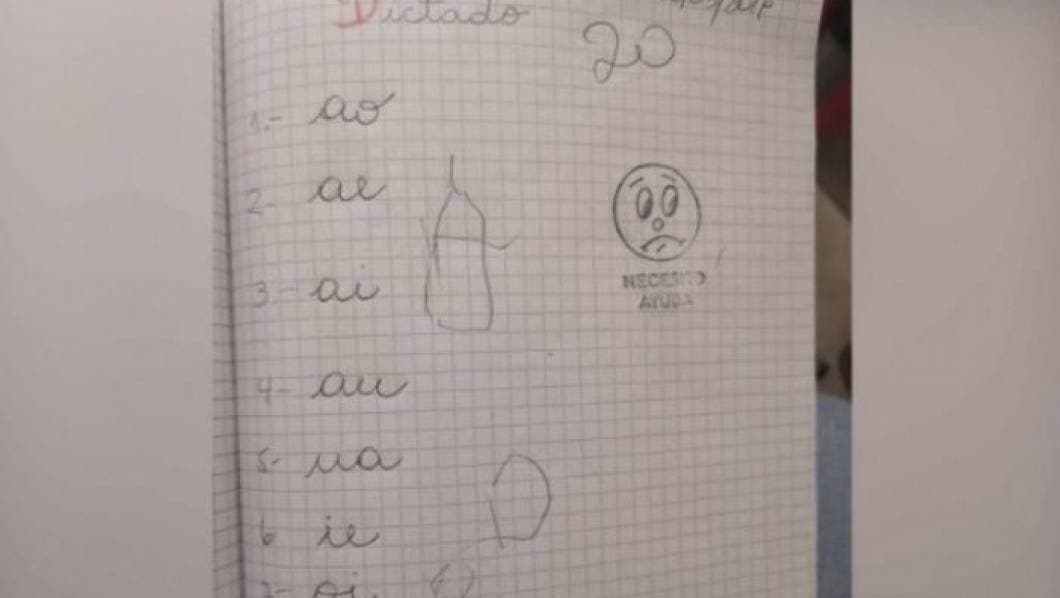 Dictado
20
1.- ao
2- ae
3- ai
NECESITO
AYUDA
4- au
5- ua
6 ie
7- oi